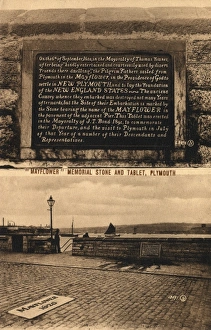 On the 6th of September, 1620, in the Mayoralty of Thomas Townes
after being "kindly entertained and courteously used by divers
Friends there dwelling", the Pilgrim Fathers sailed from
Plymouth in the MAYFLOWER, in the Providence of God to
settle in NEW PLYMOUTH, and to lay the Foundation
of the NEW ENGLAND STATES. The ancient
Causey whence they embarked was destroyed not many Years
afterwards, but the Site of their Embarkation is marked by
the Stone bearing the name of the MAYFLOWER in
the pavement of the adjacent Pier. This Tablet was erected
in the Mayoralty of J.T. Bond 1891, to commemorate
their Departure, and the visit to Plymouth in July
of that Year of a number of their Descendants and
Representatives.
"MAYFLOWER" MEMORIAL STONE AND TABLET, PLYMOUTH
Mayflower
1620